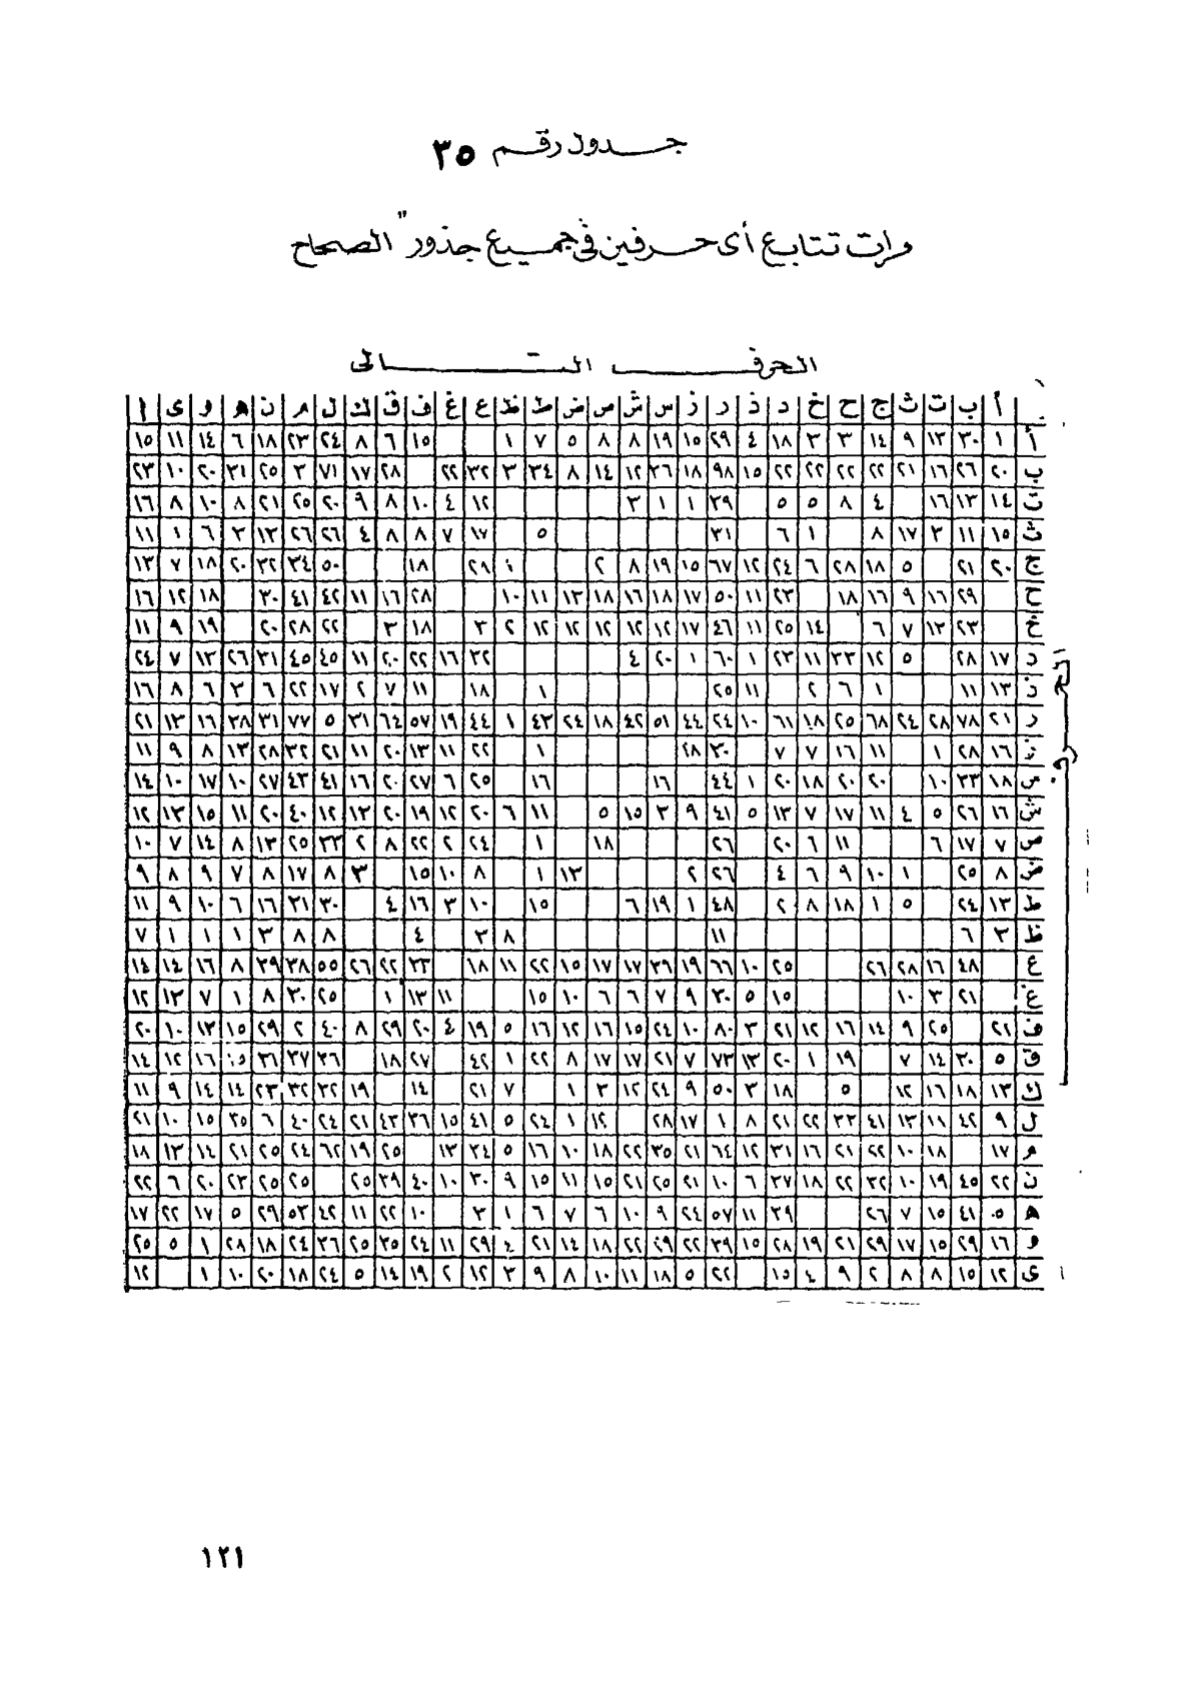 جدول رقم ٣٥
مرات تتابع أى حرفين فى جميع جذور "الصحاح"
الحرف التالى
أ ب ت ث ج ح خ د ذ ر ز س ش ص ض ط ظ ع غ ف ق ك ل م ن ه و ى ا
أ ١ ٣٠ ١٣ ٩ ١٤ ٣ ٣ ١٨ ٤ ٢٩ ١٥ ١٩ ٨ ٨ ٥ ٧ ١ ١٥ ٦ ٨ ٢٤ ٢٣ ١٨ ٦ ١٤ ١١ ١٥
ب ٢٠ ٢٦ ١٦ ٢١ ٢٢ ٢٢ ٢٢ ٢٢ ١٥ ٩٨ ١٨ ٢٦ ١٢ ١٤ ٨ ٣٤ ٣ ٣٢ ٢٢ ٢٨ ١٧ ٧١ ٣ ٢٥ ٢١ ٢٠ ١٠ ٢٣
ت ١٤ ١٣ ١٦ ٤ ٨ ٥ ٥ ٣٩ ١ ١ ٣ ١٢ ٤ ١٠ ٨ ٩ ٢٠ ٢٥ ٢١ ٨ ١٠ ٨ ١٦
ث ١٥ ١١ ٣ ١٧ ٨ ١ ٦ ٣١ ٥ ١٧ ٧ ٨ ٨ ٤ ٢٦ ٢٦ ١٣ ٣ ٦ ١ ١١
ج ٢٠ ٢١ ٥ ١٨ ٢٨ ٦ ٢٤ ١٢ ٦٧ ١٥ ١٩ ٨ ٢ ١ ٢٨ ١٨ ٥٠ ٣٤ ٣٢ ٢٠ ١٨ ٧ ١٣
ح ٢٩ ١٦ ٩ ١٦ ١٨ ٢٣ ١١ ٥٠ ١٧ ١٨ ١٦ ١٨ ١٣ ١١ ١٠ ٢٨ ١٦ ١١ ٤٢ ٤١ ٣٠ ١٨ ١٢ ١٦
خ ٢٣ ١٣ ٧ ٦ ١٤ ٢٥ ١١ ٤٦ ١٧ ١٢ ١٢ ١٢ ١٢ ١٢ ٢ ٣ ١٨ ٣ ٢٢ ٢٨ ٢٠ ١٩ ٩ ١١
د ١٧ ٢٨ ٥ ١٢ ٢٣ ١١ ٢٣ ١ ٦٠ ١ ٢٠ ٤ ٣٢ ١٦ ٢٢ ٢٠ ١١ ٤٥ ٤٥ ٣١ ٢٦ ١٣ ٧ ٢٤
ذ ١٣ ١١ ١ ٦ ٢ ١١ ٢٥ ١ ١٨ ١١ ٧ ٢ ١٧ ٢٢ ٦ ٣ ٦ ٨ ١٦
ر ٢١ ٧٨ ٢٨ ٢٤ ٦٨ ٢٥ ١٨ ٦١ ١٠ ٢٤ ٤٤ ٥١ ٤٢ ١٨ ٢٤ ٤٣ ١ ٤٤ ١٩ ٥٧ ٦٤ ٣١ ٥ ٧٧ ٣١ ٣٨ ١٦ ١٣ ٢١
ز ١٦ ٢٨ ١ ١١ ١٦ ٧ ٧ ٣٠ ٢٨ ١ ٢٢ ١١ ١٣ ٢٠ ١١ ٢١ ٣٢ ٢٨ ١٣ ٨ ٩ ١١
س ١٨ ٣٣ ١٠ ٢٠ ٢٠ ١٨ ٢٠ ١ ٤٤ ١٦ ١٦ ٢٥ ٦ ٢٧ ٢٠ ١٦ ٤١ ٤٣ ٢٧ ١٠ ١٧ ١٠ ١٤
ش ١٦ ٢٦ ٥ ٤ ١١ ١٧ ٧ ١٣ ٥ ٤١ ٩ ٣ ١٥ ٥ ١١ ٦ ٢٠ ١٢ ١٩ ٢٠ ١٣ ١٢ ٤٠ ٢٠ ١١ ١٥ ١٣ ١٢
ص ٧ ١٧ ٦ ١١ ٦ ٢٠ ٢٦ ١٨ ١ ٢٤ ٢ ٢٢ ٨ ٢ ٣٣ ٢٥ ١٣ ٨ ١٤ ٧ ١٠
ض ٨ ٢٥ ١ ١٠ ٩ ٦ ٤ ٢٦ ٢ ١٣ ١ ٨ ١٠ ١٥ ٣ ٨ ١٧ ٨ ٧ ٩ ٨ ٩
ط ١٣ ٢٤ ٥ ١ ١٨ ٨ ٢ ٤٨ ١ ١٩ ٦ ١٥ ١٠ ٣ ١٦ ٤ ٣٠ ٣١ ١٦ ٦ ١٠ ٩ ١١
ظ ٣ ٦ ١١ ٨ ٣ ٤ ٨ ٨ ٣ ١ ١ ١ ٧
ع ٤٨ ١٦ ٢٨ ٢٦ ٢٥ ١٠ ٦٦ ١٩ ٢٦ ١٧ ١٧ ١٥ ٢٢ ١١ ١٨ ٣٣ ٢٢ ٢٦ ٥٥ ٣٨ ٣٩ ٨ ١٦ ١٤ ١٤
غ ٢١ ٣ ١٠ ١٥ ٥ ٣٠ ٩ ٧ ٦ ٦ ١٠ ١٥ ١١ ١٣ ١ ٢٥ ٣٠ ٨ ١ ٧ ١٣ ١٢
ف ٢١ ٢٥ ٩ ١٤ ١٦ ١٢ ٢١ ٣ ٨٠ ١٠ ٢٤ ١٥ ١٦ ١٢ ١٦ ٥ ١٩ ٤ ٢٠ ٢٩ ٨ ٤٠ ٢ ٢٩ ١٥ ١٣ ١٠ ٢٠
ق ٥ ٣٠ ١٤ ٧ ١٩ ١ ٢٠ ١٣ ٧٣ ٧ ٢١ ١٧ ١٧ ٨ ٢٢ ١ ٤٢ ٢٧ ١٨ ٣٦ ٣٧ ٣١ ١٥ ١٦ ١٢ ١٤
ك ١٣ ١٨ ١٦ ١٢ ٥ ١٨ ٣ ٥٠ ٩ ٢٤ ١٢ ٣ ١ ٧ ٢١ ١٤ ١٩ ٣٢ ٣٢ ٢٣ ١٤ ١٤ ٩ ١١
ل ٩ ٤٢ ١١ ١٣ ٤١ ٣٢ ٢٢ ٢١ ٨ ١ ١٧ ٢٨ ١٢ ١ ٢٤ ٥ ٤١ ١٥ ٣٦ ٤٣ ٢١ ٢٤ ٤٠ ٦ ٢٥ ١٥ ١٠ ٢١
م ١٧ ١٨ ١٠ ٢٢ ٢١ ١٦ ٣١ ١٢ ٦٤ ٢١ ٣٥ ٢٢ ١٨ ١٠ ١٦ ٥ ٣٤ ١٣ ٢٥ ١٩ ٦٢ ٢٤ ٢٥ ٢١ ١٤ ١٣ ١٨
ن ٢٢ ٤٥ ١٩ ١٠ ٣٢ ٢٢ ١٨ ٣٧ ٦ ١٠ ٢١ ٢٥ ٢١ ١٥ ١١ ١٥ ٩ ٣٠ ١٠ ٤٠ ٣٩ ٢٥ ٢٥ ٢٥ ٢٣ ٢٠ ٦ ٢٢
ه ٥ ٤١ ١٥ ٧ ٢٦ ٣٩ ١١ ٥٧ ٢٤ ٩ ١٠ ٦ ٧ ٦ ١ ٣ ١٠ ٢٢ ١١ ٤٢ ٥٣ ٢٩ ٥ ١٧ ٢٢ ١٧
و ١٦ ٢٩ ١٥ ١٧ ٢٩ ٢١ ١٩ ٢٨ ١٥ ٣٩ ٢٢ ٢٩ ٢٢ ١٨ ١٤ ٢١ ٤ ٢٩ ١١ ٢٤ ٢٥ ٢٥ ٣٦ ٢٤ ١٨ ٢٨ ١ ٥ ٢٥
ى ١٢ ١٥ ٨ ٨ ٢ ٩ ٤ ١٥ ٢٢ ٥ ١٨ ١١ ١٠ ٨ ٩ ٣ ١٢ ٢ ١٩ ١٤ ٥ ٢٤ ١٨ ٢٠ ١٠ ١ ١٢
الحرف
١٢١